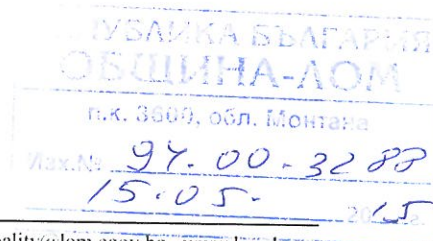 РЕПУБЛИКА БЪЛГАРИЯ
ОБЩИНА-ЛОМ
п.к. 3600, обл. Монтана
Изх.№ 94.00-3288
15.05. 2015 г.